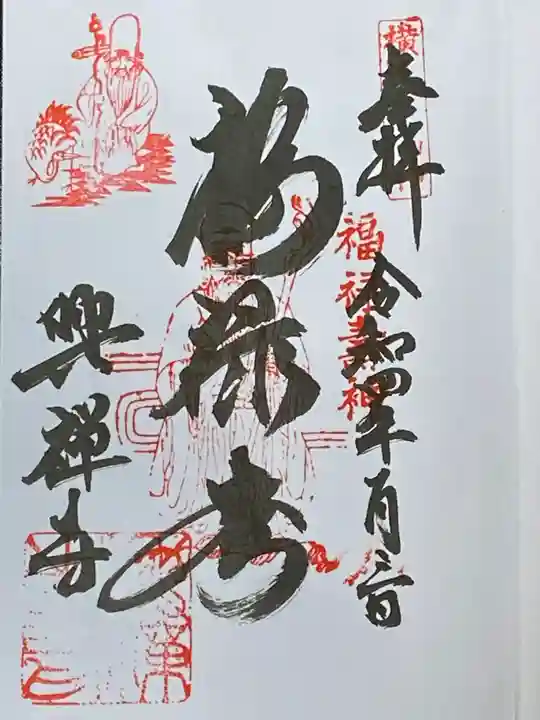 奉拝
令和四年一月三日
福禄寿神
福禄寿
興禅寺